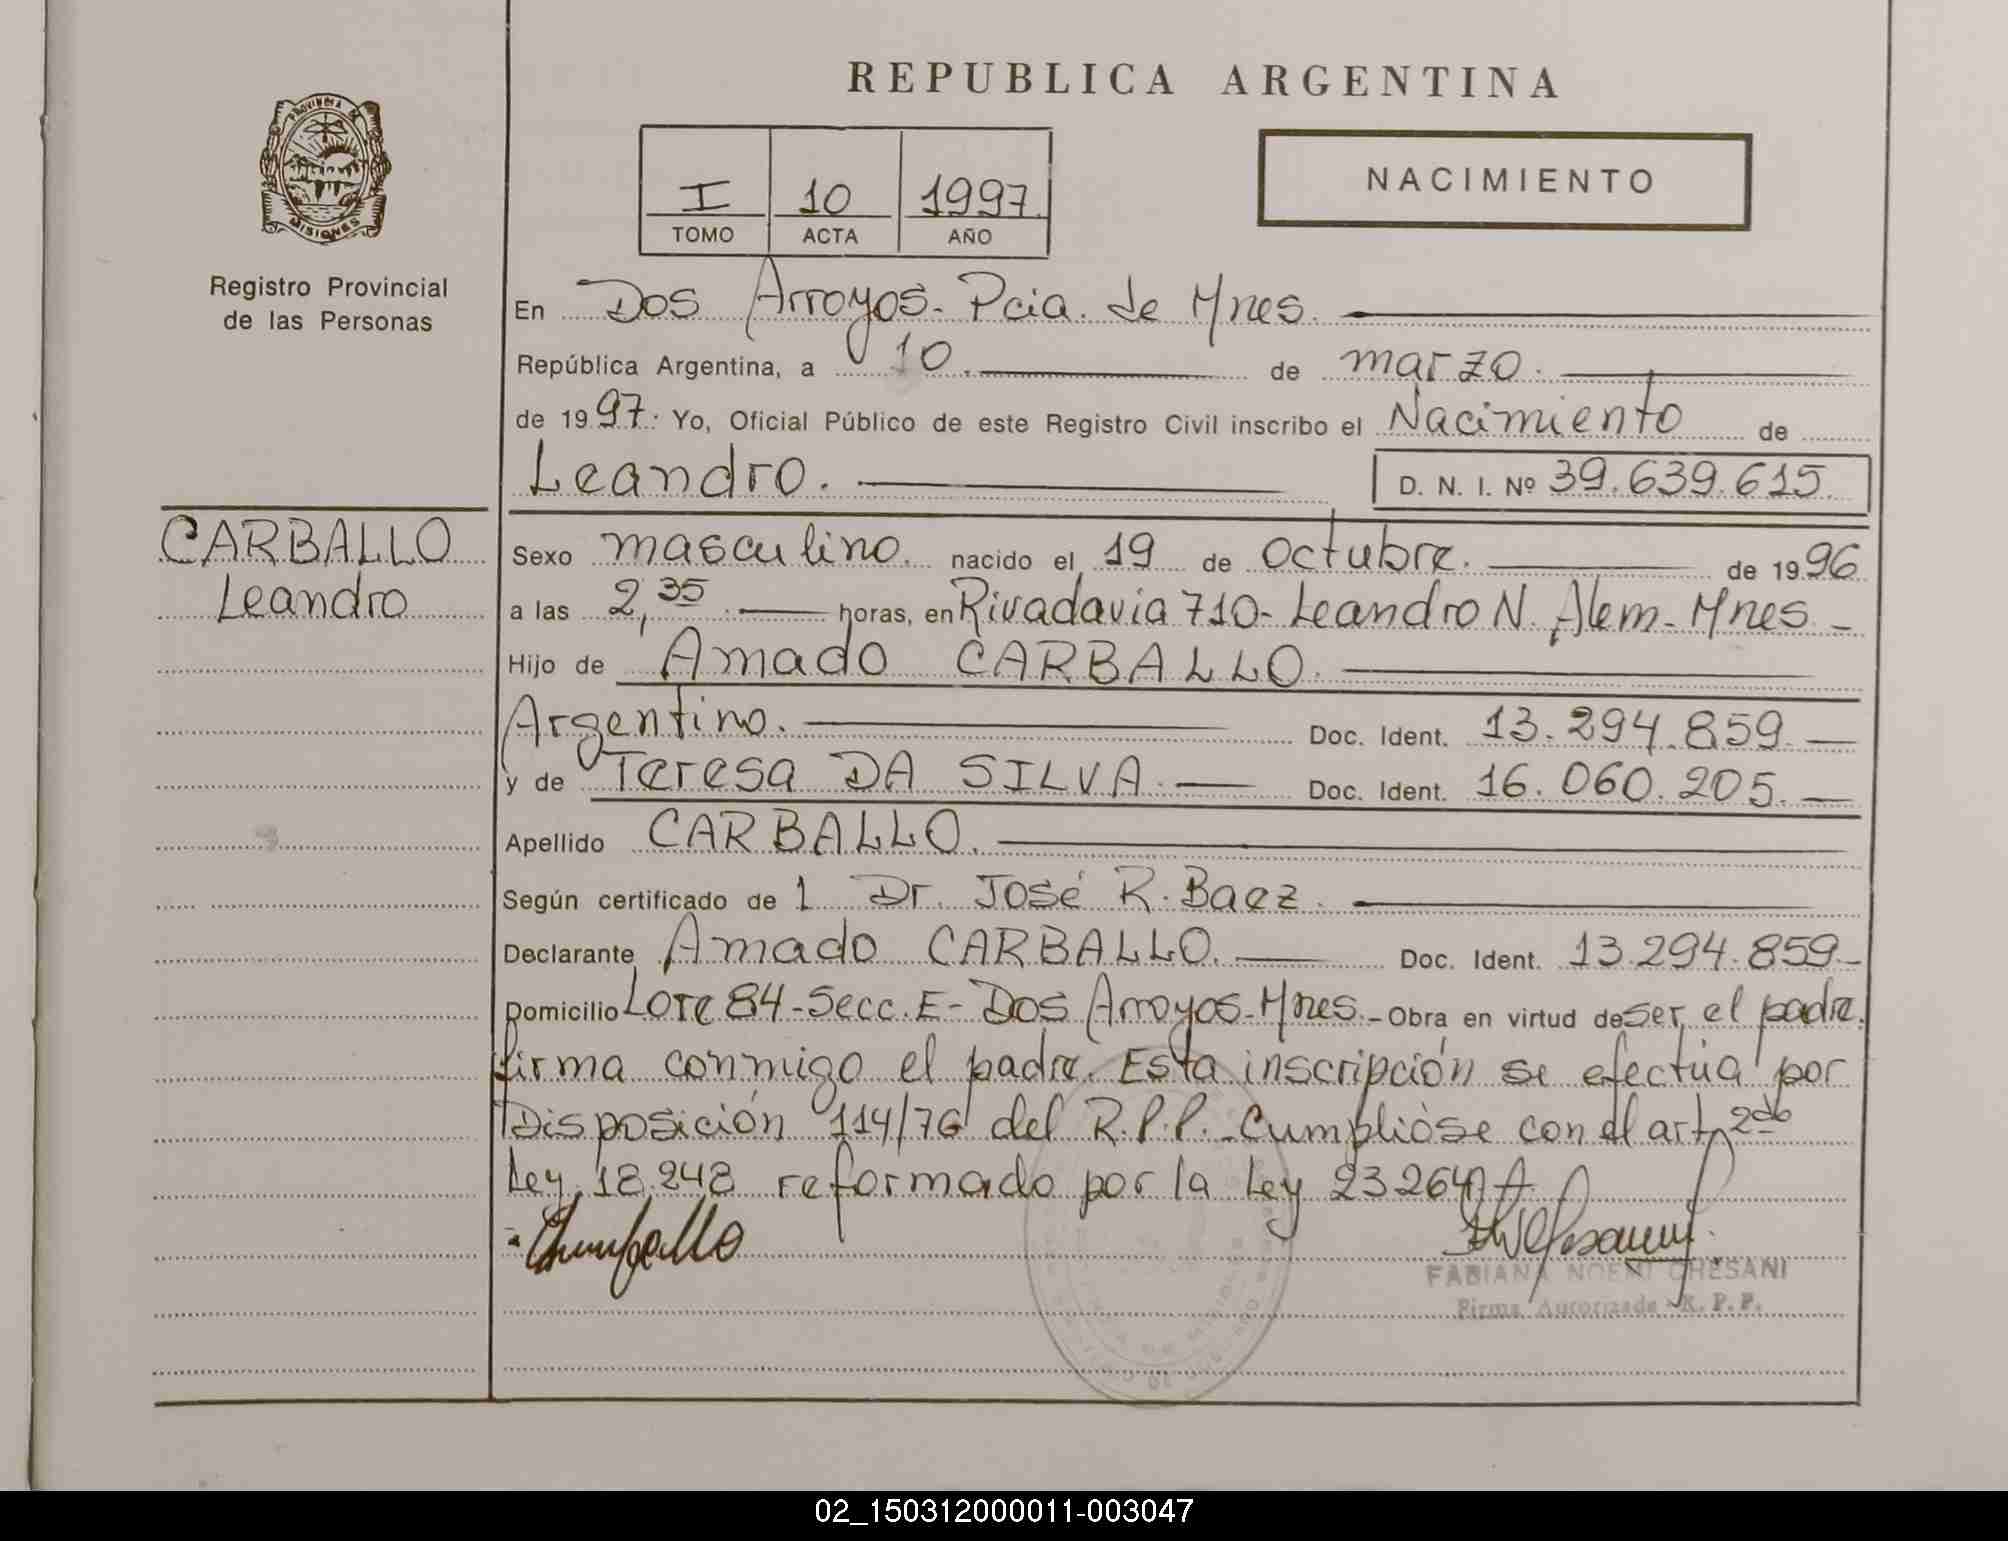 PROVINCIA DE
MISIONES
Registro Provincial
de las Personas
CARBALLO
Leandro
REPUBLICA ARGENTINA
I 10 1997.
TOMO ACTA AÑO
NACIMIENTO
En Dos Arroyos- Pcia. de Mnes.
República Argentina, a 10. de marzo.
de 1997. Yo, Oficial Público de este Registro Civil inscribo el Nacimiento de
Leandro. D. N. I. Nº 39.639.615.
Sexo masculino. nacido el 19 de octubre. de 1996
a las 2,35 horas, en Rivadavia 710- Leandro N. Alem- Mnes -
Hijo de Amado CARBALLO.
Argentino. Doc. Ident. 13.294.859.-
y de Teresa DA SILVA.- Doc. Ident. 16.060.205.-
Apellido CARBALLO.
Según certificado de 1 Dr. José R. Baez.
Declarante Amado CARBALLO. Doc. Ident. 13.294.859-
Domicilio Lote 84-Secc. E- Dos Arroyos-Mnes.- Obra en virtud de ser el padre.
firma conmigo el padre. Esta inscripción se efectúa por
Disposición 114/76 del R.P.P. Cumplióse con el art. 2do
Ley 18.248 reformado por la Ley 23264
FABIANA NOEMI CRESANI
Firma Autorizada - R. P. P.
02_150312000011-003047